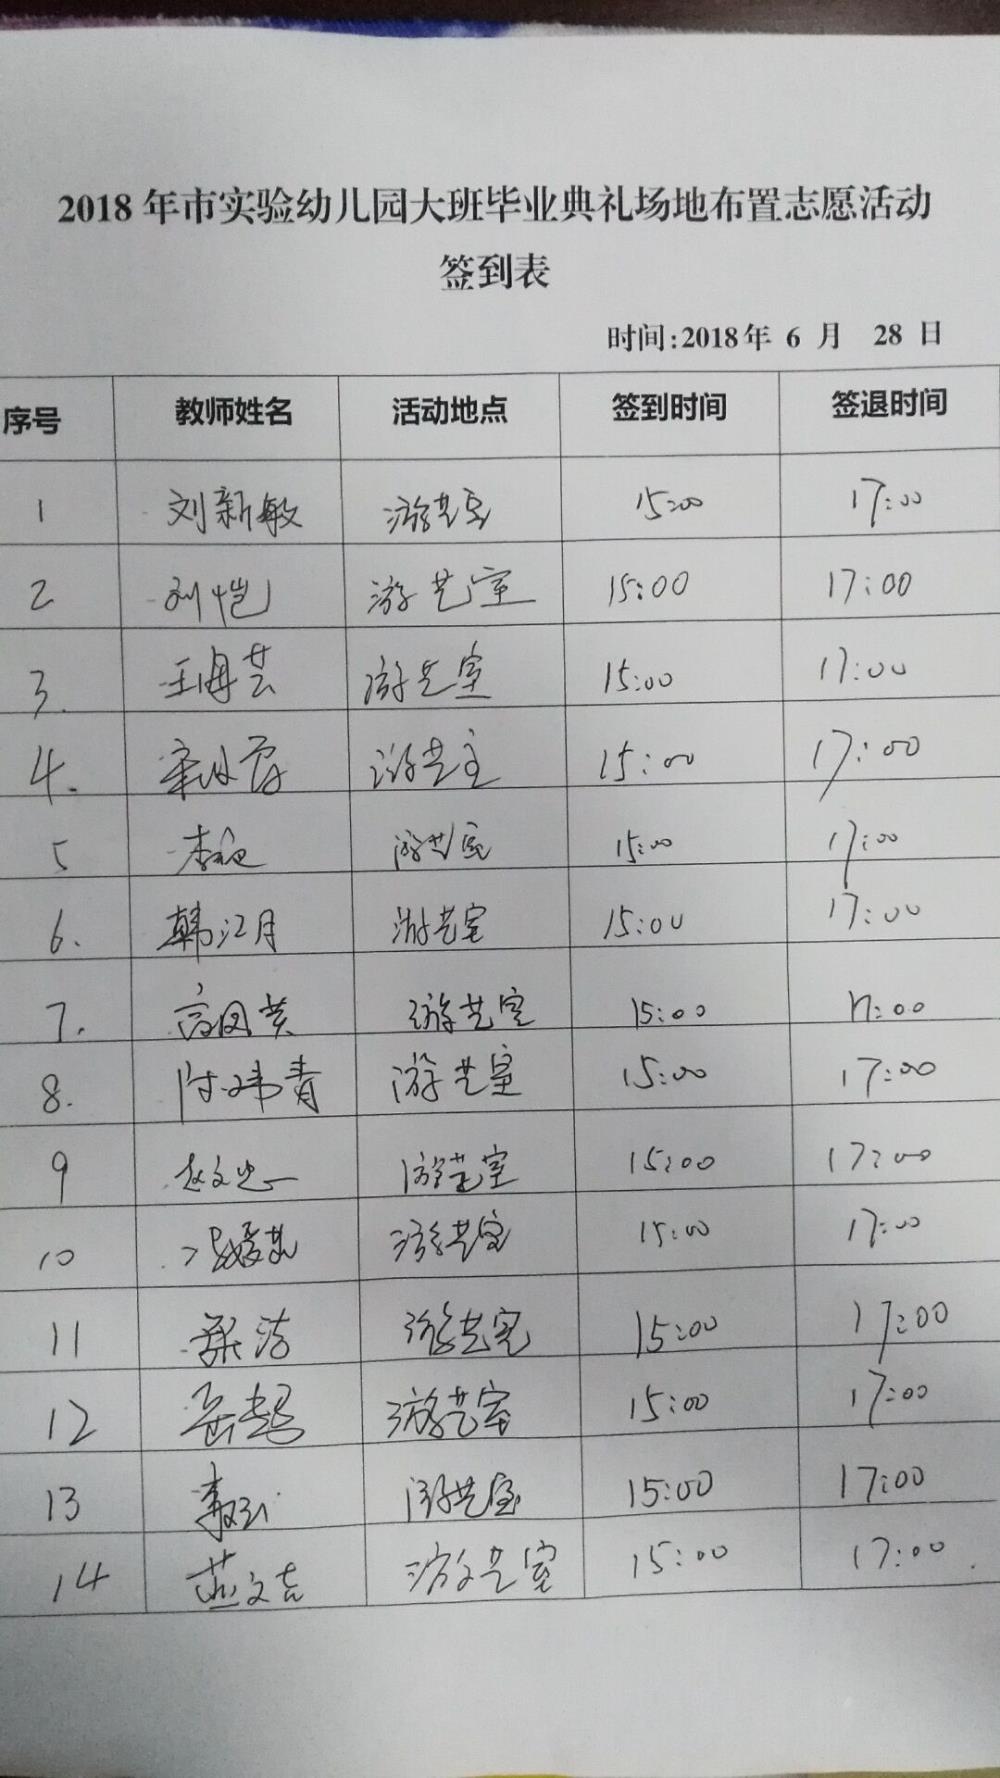 2018 年市实验幼儿园大班毕业典礼场地布置志愿活动
签到表
时间:2018年 6 月 28 日
序号 教师姓名 活动地点 签到时间 签退时间
1 刘新敏 游艺室 15:00 17:00
2 刘恺 游艺室 15:00 17:00
3. 王海芸 游艺室 15:00 17:00
4. 游艺室 15:00 17:00
5 游艺室 15:00 17:00
6. 韩江月 游艺室 15:00 17:00
7. 高凤英 游艺室 15:00 17:00
8. 陈玮青 游艺室 15:00 17:00
9 赵文忠 游艺室 15:00 17:00
10 游艺室 15:00 17:00
11 梁洁 游艺室 15:00 17:00
12 岳超 游艺室 15:00 17:00
13 游艺室 15:00 17:00
14 燕文吉 游艺室 15:00 17:00